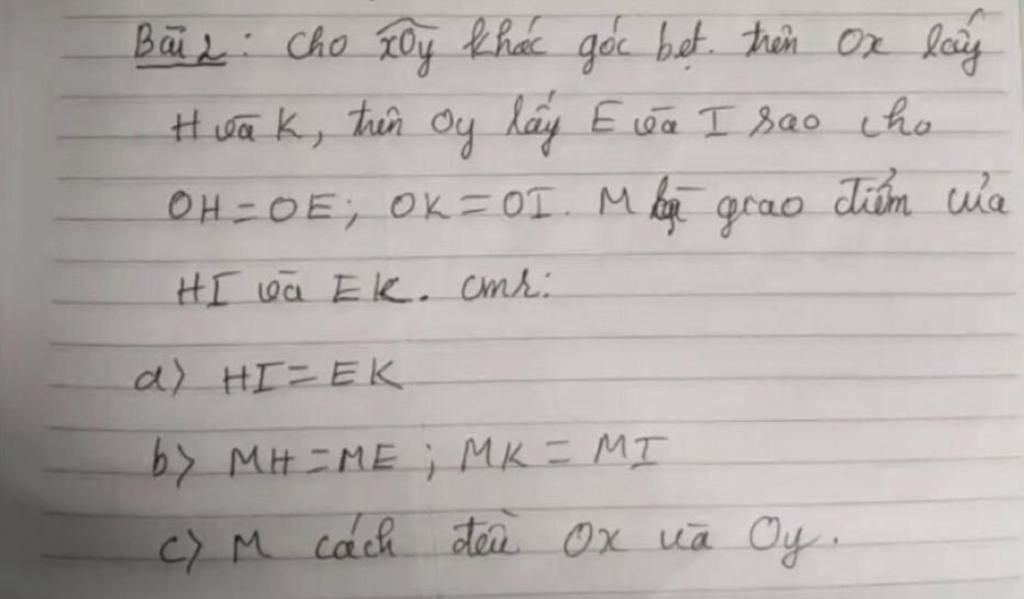 Bài 2: Cho xOy khác góc bẹt. trên Ox lấy
H và K, trên Oy lấy E và I sao cho
OH = OE; OK = OI. M là giao điểm của
HI và EK. cmr:
a) HI = EK
b) MH = ME; MK = MI
c) M cách đều Ox và Oy.